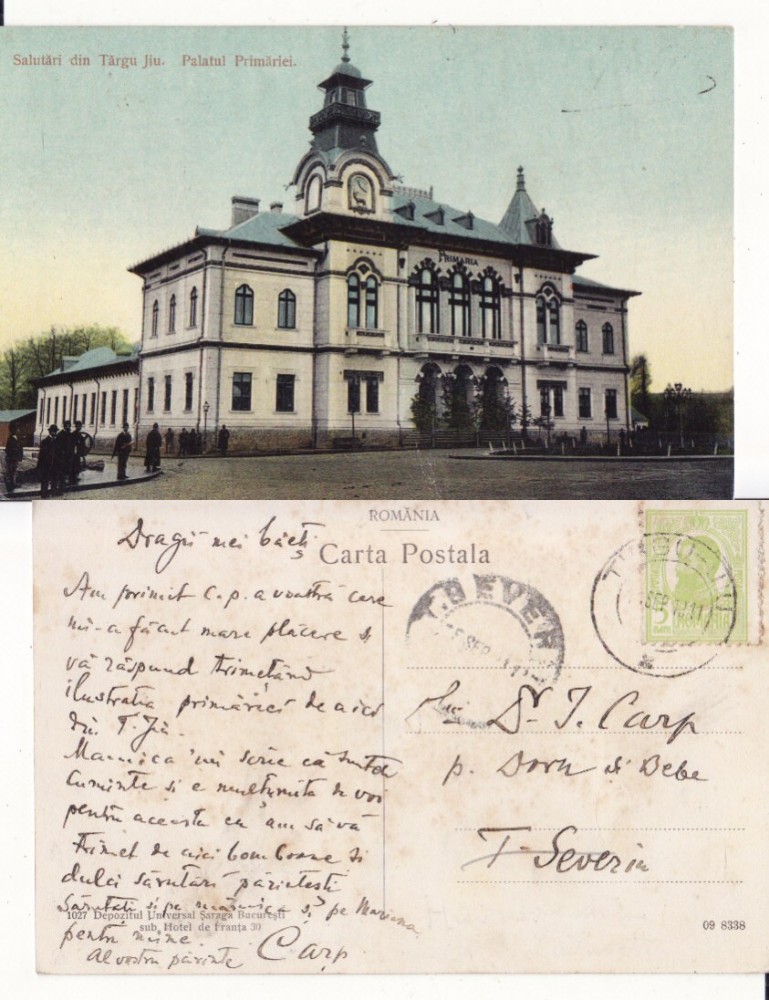 Salutări din Târgu Jiu. Palatul Primăriei.
PRIMARIA
ROMÂNIA
Carta Postala
Dragii mei băeți
Am primit C.p. a voastră care
mi-a făcut mare plăcere și
vă răspund trimețând
ilustrația primăriei de aici
din T-Jiu.
Mamica îmi scrie că sunteți
cuminte și e mulțumită de voi
pentru aceasta eu am să vă
trimet de aici bomboane și
dulci sărutări părintești
Sărutați și pe mămica și pe Mariana
pentru mine.
Al vostru părinte Carp
T. SEVERIN
SEP
TÂRGU-JIU
SEP 11
ROMANIA
5
D-lui Dr. I. Carp
p. Doru și Bebe
T-Severin
1027 Depozitul Universal Șaraga București
sub Hotel de Franța 30
09 8338